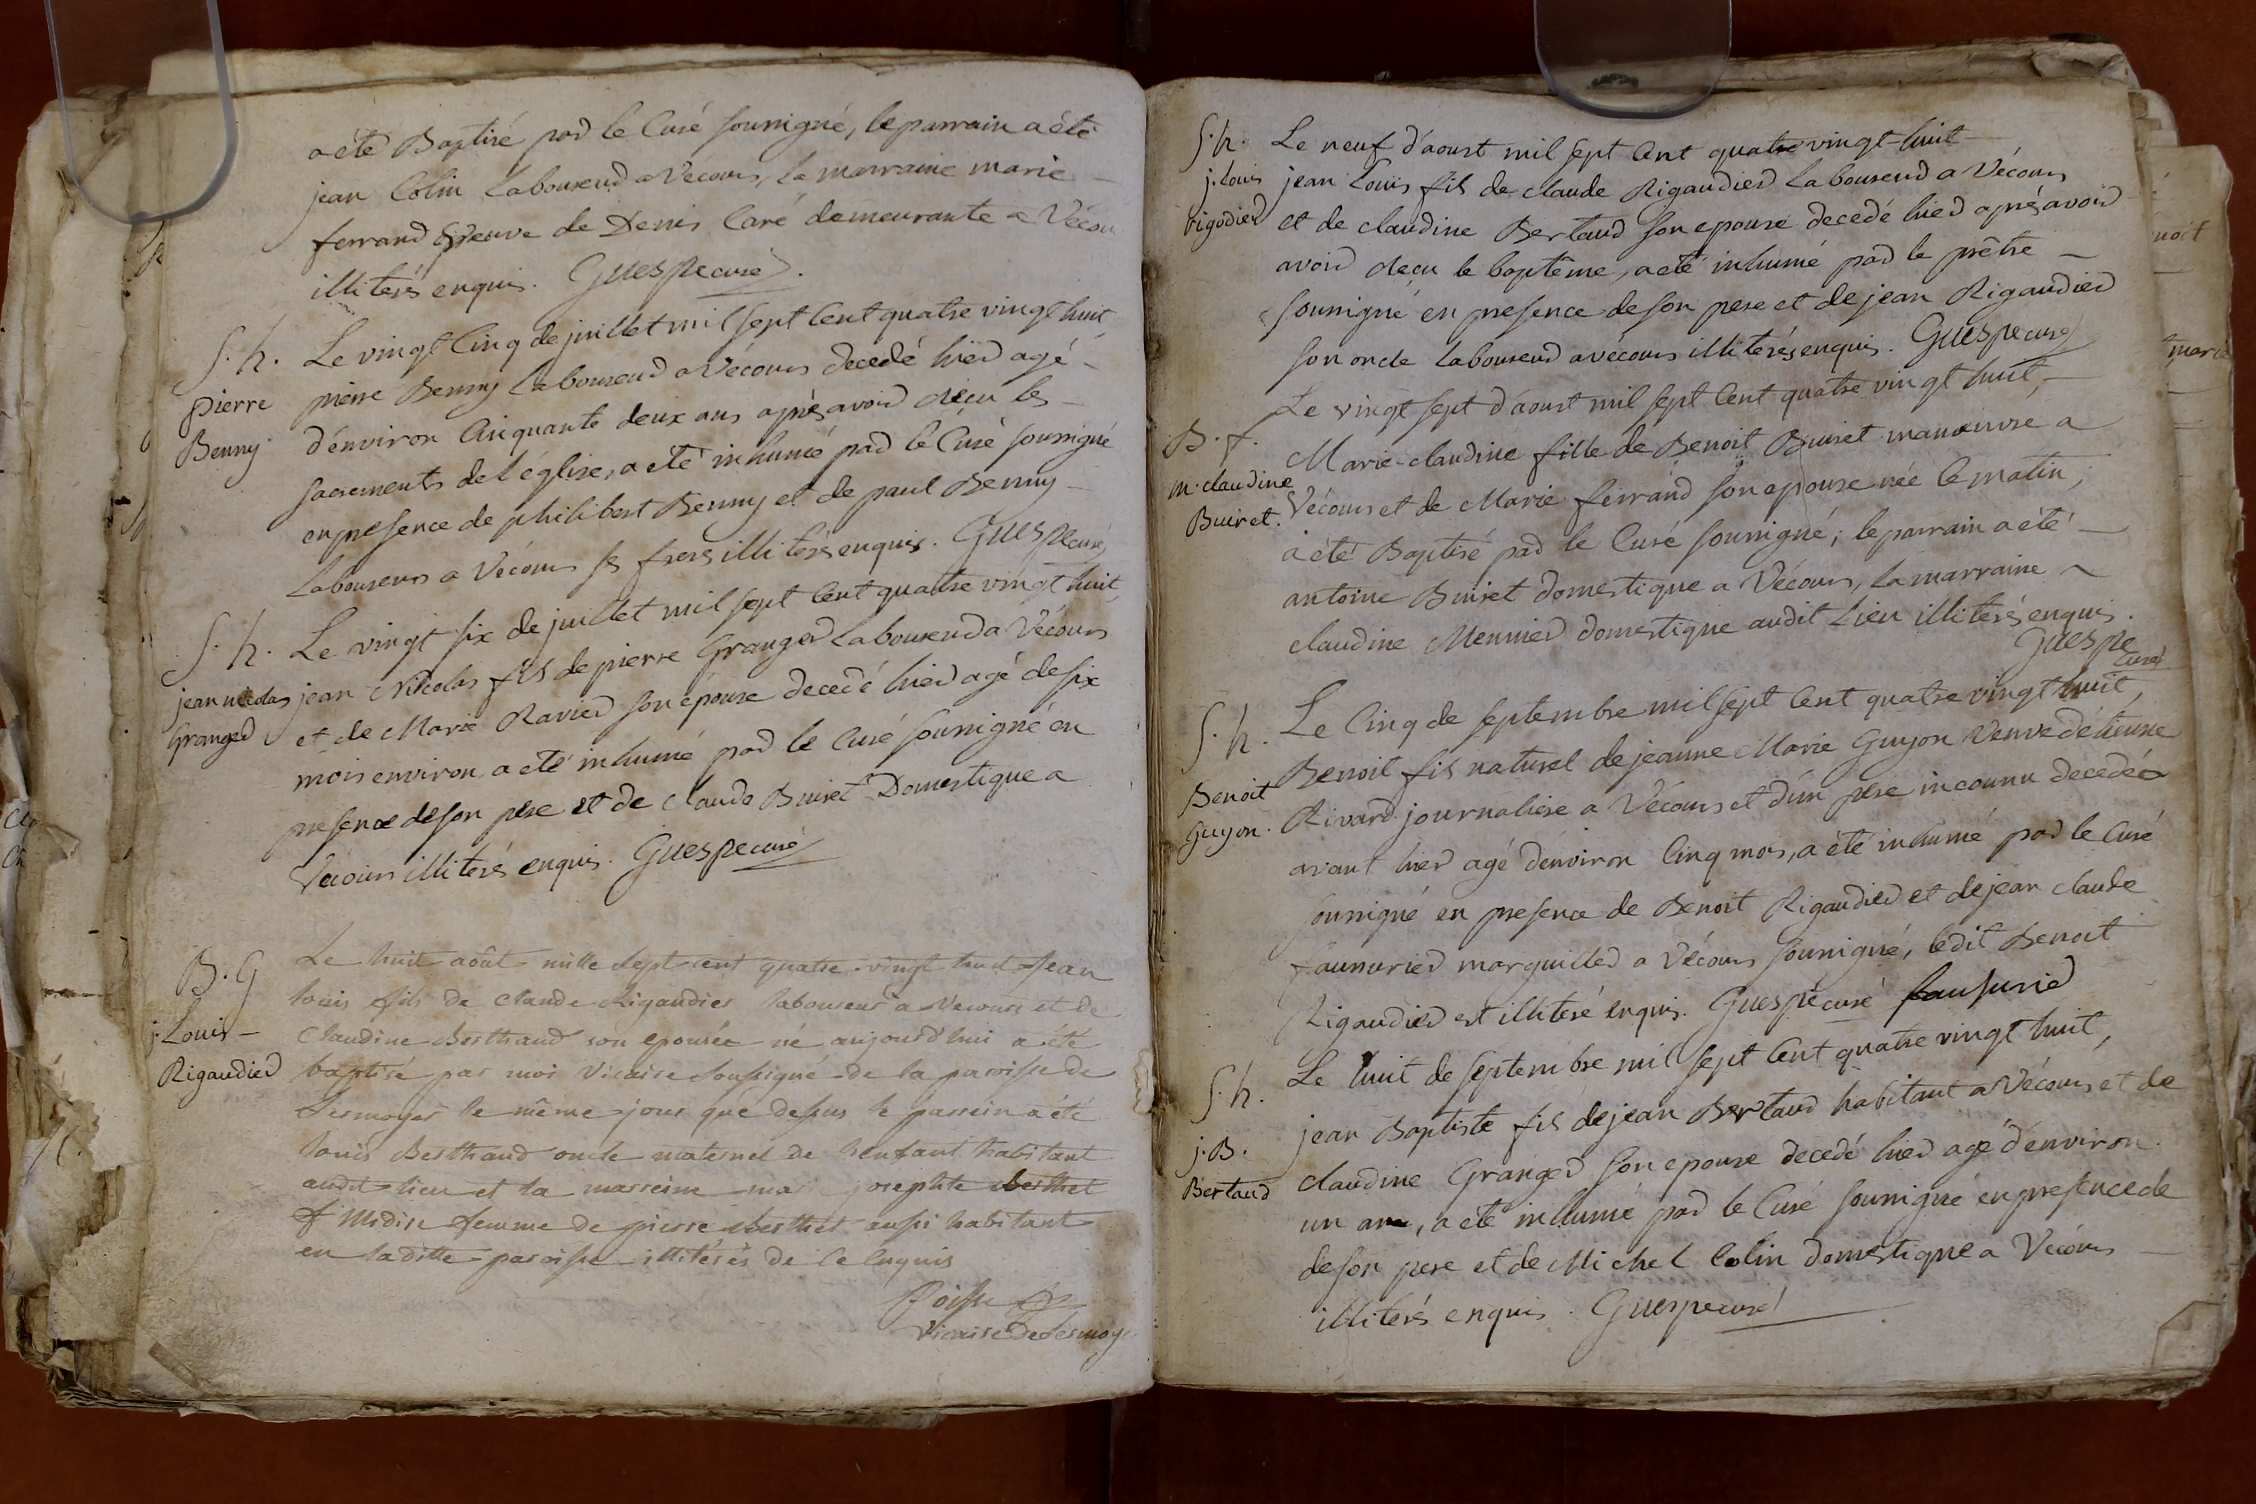 a été Baptisé par le Curé soussigné, le parrain a été
jean Colin laboureur a Vécours, la marraine marie
ferrand veuve de Denis Caré demeurante a Vécour
illiterés enquis. Guespe curé.
S. h.
pierre
Benny
Le vingt Cinq de juillet mil sept Cent quatre vingt huit
pierre Benny laboureur a Vécours decedé hier agé
d'environ Cinquante deux ans après avoir reçu les
sacrements de l'église, a été inhumé par le Curé soussigné
en presence de philibert Benny et de paul Benny
laboureurs a Vécours ses freres illiterés enquis. Guespe curé
S. h.
jean nicolas
Granger
Le vingt six de juillet mil sept Cent quatre vingt huit,
jean Nicolas fils de pierre Granger laboureur a Vécours
et de Marie Ravier son épouse decedé hier agé de six
mois environ a été inhumé par le Curé soussigné en
presence de son pere et de claude Buiret Domestique a
Vécours illiterés enquis. Guespe curé
B. G
j. Louis
Rigaudier
Le huit août mille sept cent quatre vingt huit jean
louis fils de claude Rigaudier laboureur a Vecours et de
Claudine Berthaud son epousée né aujourd'hui a été
baptisé par moi Vicaire soussigné de la paroisse de
Sermoyer le même jour que dessus le parrein a été
louis Berthaud oncle maternel de l'enfant habitant
audit lieu et la marreine josephte berthet
femme de pierre berthet aussi habitant
en laditte paroisse illitérés de ce enquis
Vicaire de Sermoye
S. h.
j. Louis
rigodier
Le neuf d'aoust mil sept Cent quatre vingt huit
jean Louis fils de claude Rigaudier laboureur a Vécours
et de claudine Bertaud son epouse decedé hier après avoir
avoir reçu le baptême, a été inhumé par le prêtre
soussigné en presence de son pere et de jean Rigaudier
son oncle laboureur a vécours illiterés enquis. Guespe curé
B. f.
m. claudine
Buiret.
Le vingt sept d'aoust mil sept Cent quatre vingt huit,
Marie-claudine fille de Benoit Buiret manœuvre a
Vécours et de Marie ferrand son epouse née le matin,
a été Baptisé par le Curé soussigné; le parrain a été
antoine Buiret domestique a Vécours, la marraine
claudine Meunier domestique audit lieu illiterés enquis.
Guespe
curé
S. h.
Benoit
Guyon.
Le Cinq de septembre mil sept Cent quatre vingt huit,
Benoit fils naturel de jeanne Marie Guyon Veuve d'étienne
Rivard journaliere a Vécours et d'un père inconnu decedé
avant hier agé d'environ Cinq mois, a été inhumé par le Curé
soussigné en presence de Benoit Rigaudier et de jean claude
faussurier marguiller a Vécours soussigné, ledit Benoit
Rigaudier est illiteré enquis. Guespe curé fausurier
S. h.
j. B.
Bertaud
Le huit de septembre mil sept Cent quatre vingt huit,
jean Baptiste fils de jean Bertaud habitant a Vécours et de
claudine Granger son epouse decedé hier agé d'environ
un an, a été inhumé par le Curé soussigné en presence de
de son pere et de Michel Colin domestique a Vécours
illiterés enquis. Guespe curé